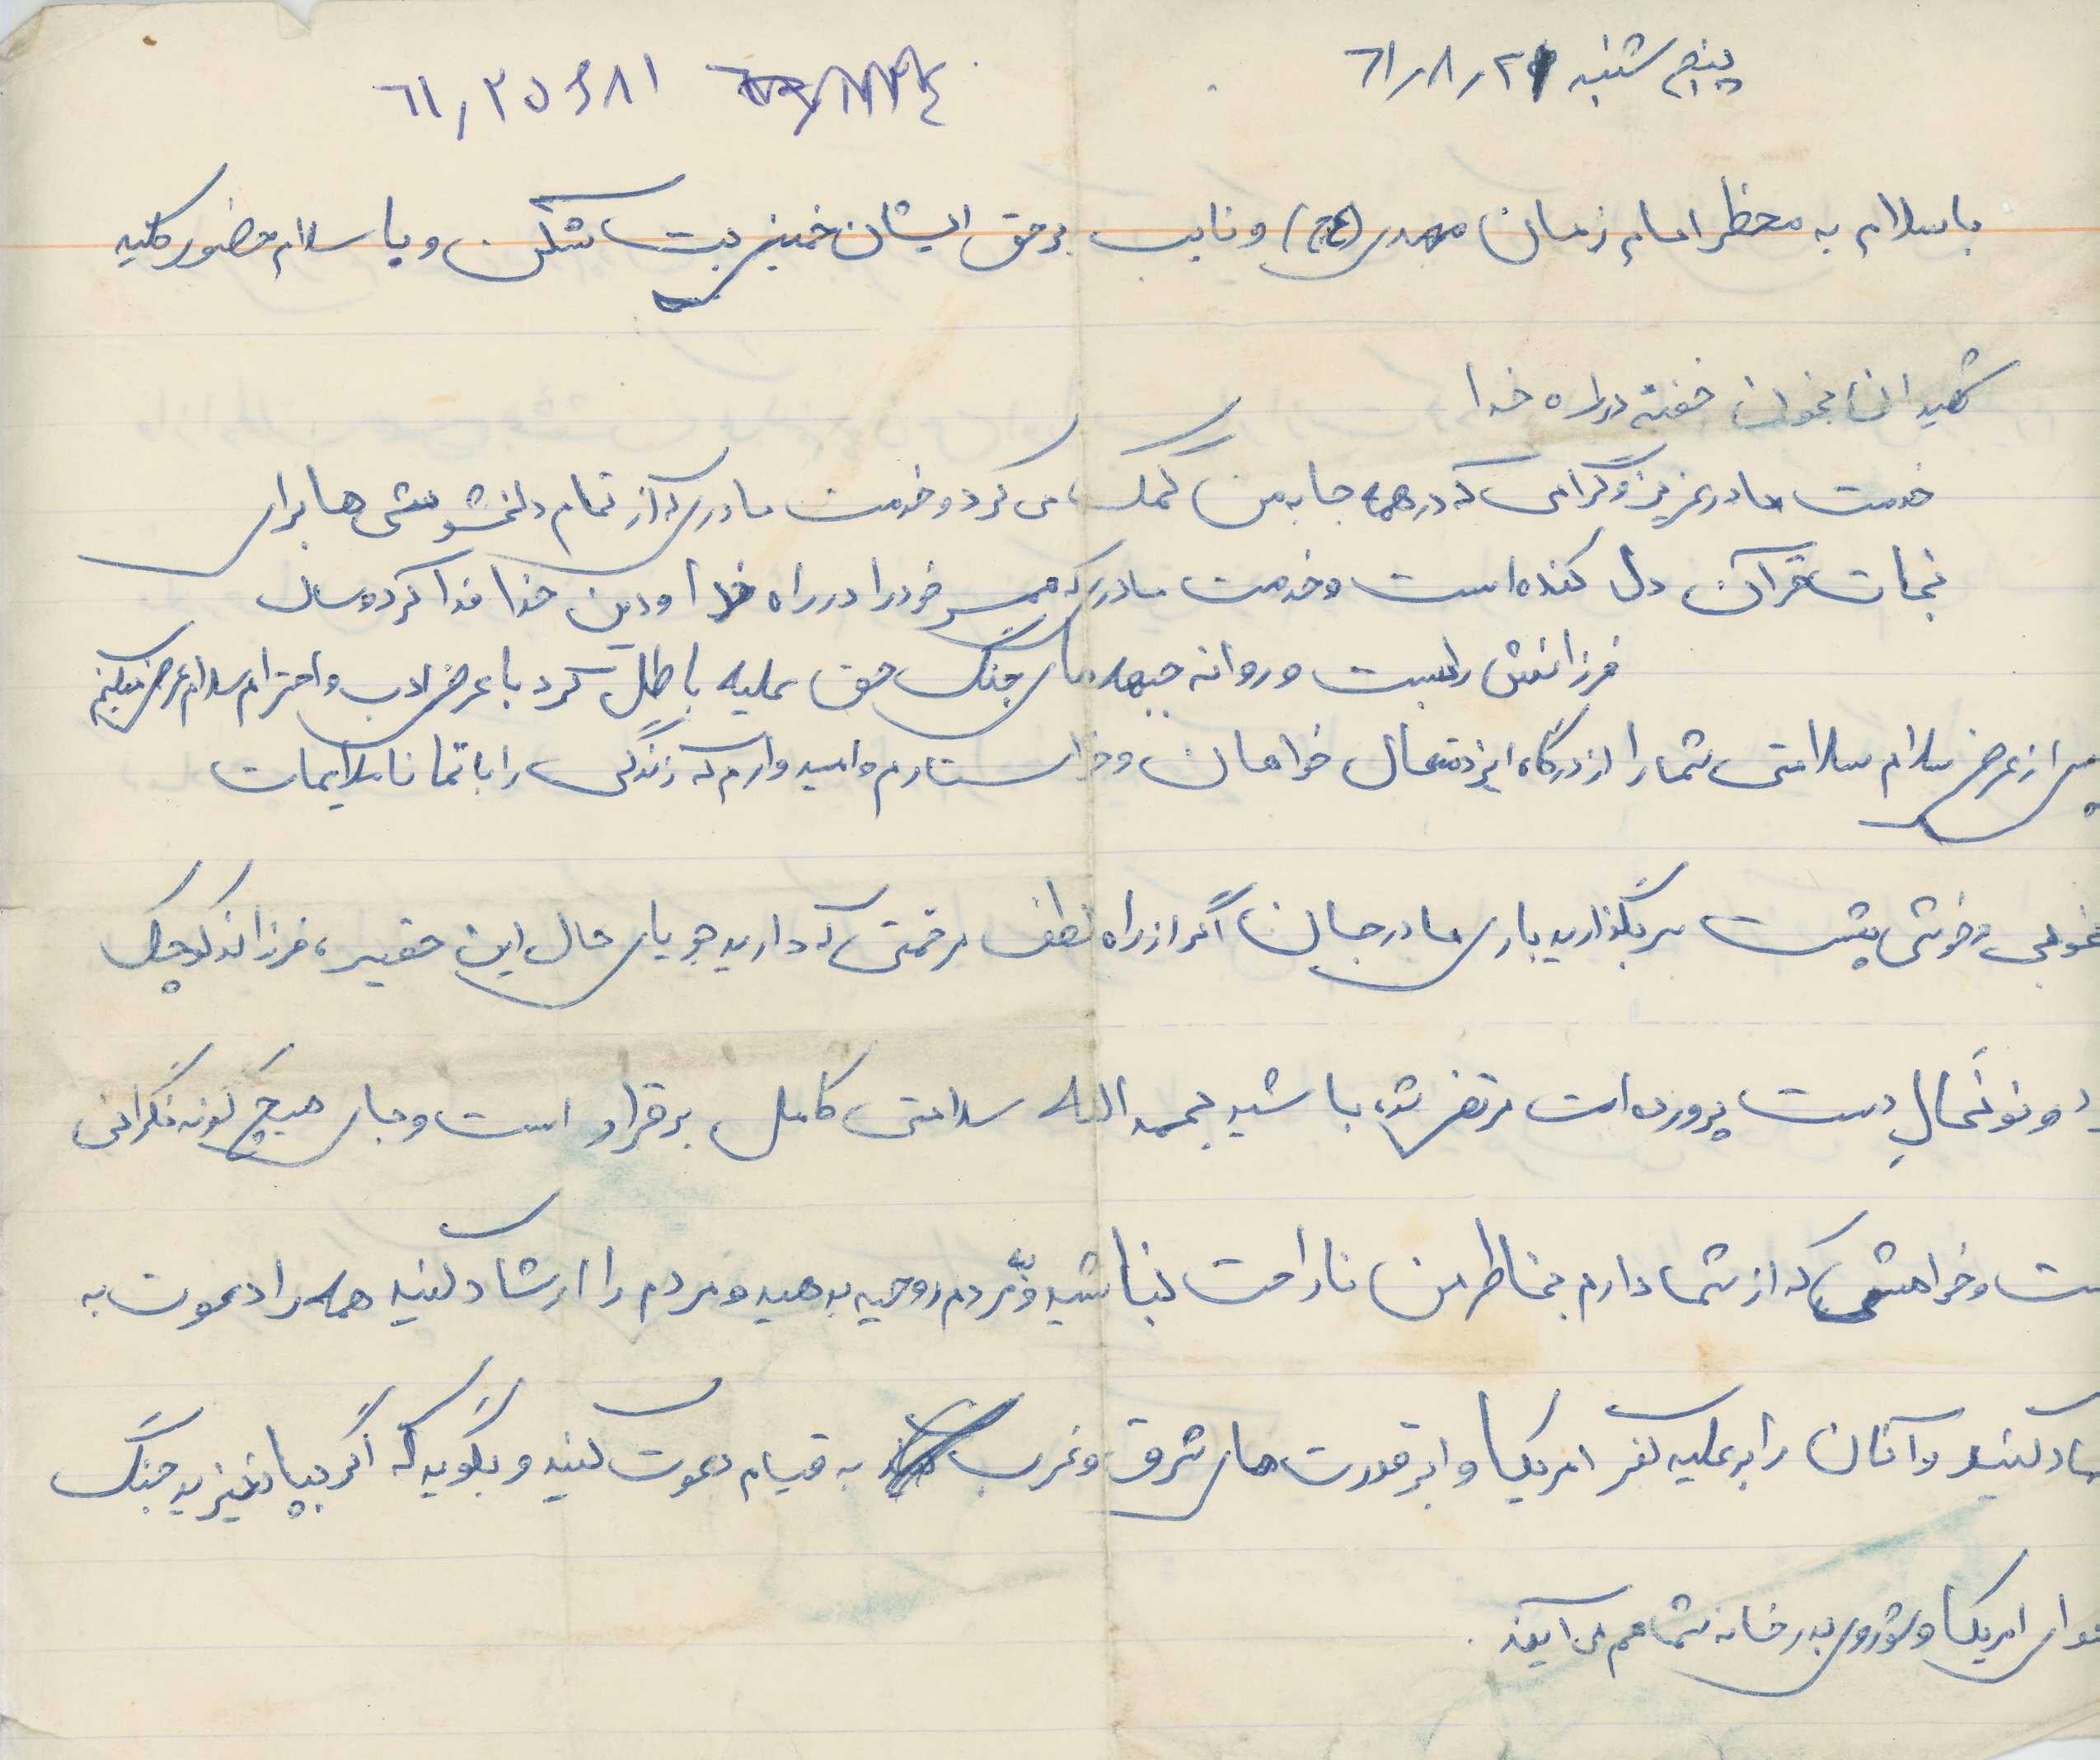 پنج شنبه ۶۱٫۸٫۲۱
۶۱٫۲۵۶۸۱
باسلام به محظر امام زمان مهدی (عج) و نایب برحق ایشان خمینی بت شکن و با سلام حضور کلیه
شهیدان بخون خفته در راه خدا
خدمت مادر عزیز و گرامی که در همه جا به من کمک می کرد و خدمت مادری که از تمام دلخشوشی ها برای
نجات قرآن دل کنده است و خدمت مادری که خود را در راه خدا و دین خدا فدا کرد و
فرزانش رابست و روانه جبهه های جنگ حق علیه باطل کرد با عرض ادب و احترام سلام عرض میکنم
پس از عرض سلام سلامتی شما را از درگاه ایزد متعال خواهان و خواستارم و امیدوارم که زندگی را با تما ناملایمات
بخوبی و خوشی پشت سر بگذارید باری مادر جان اگر از راه لطف مرحمتی که دارید جویای حال این حقیر، فرزاند کوچک
و نونهالِ دست پرورده ات مرتضی شده باشید بحمد الله سلامتی کامل برقرار است و جای هیچ گونه نگرانی
ست و خواهشی که از شما دارم بخاطر من ناراحت نباشید و به مردم روحیه بدهید و مردم را ارشاد کنید همه را دعوت به
کنید و آنان را بر علیه کفر امریکا و ابرقدرت های شرق و غرب به قیام دعوت کنید و بگوید که اگر بپا نخیزید جنگ
امریکا و شوروی بدر خانه شما هم می آیند.